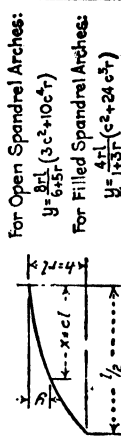 For Open Spandrel Arches:
y=8rl/6+5r (3c²+10c⁴r)
For Filled Spandrel Arches:
y=4rl/1+3r (c²+24c⁵r)
y
x=cl
h=rl
l/2